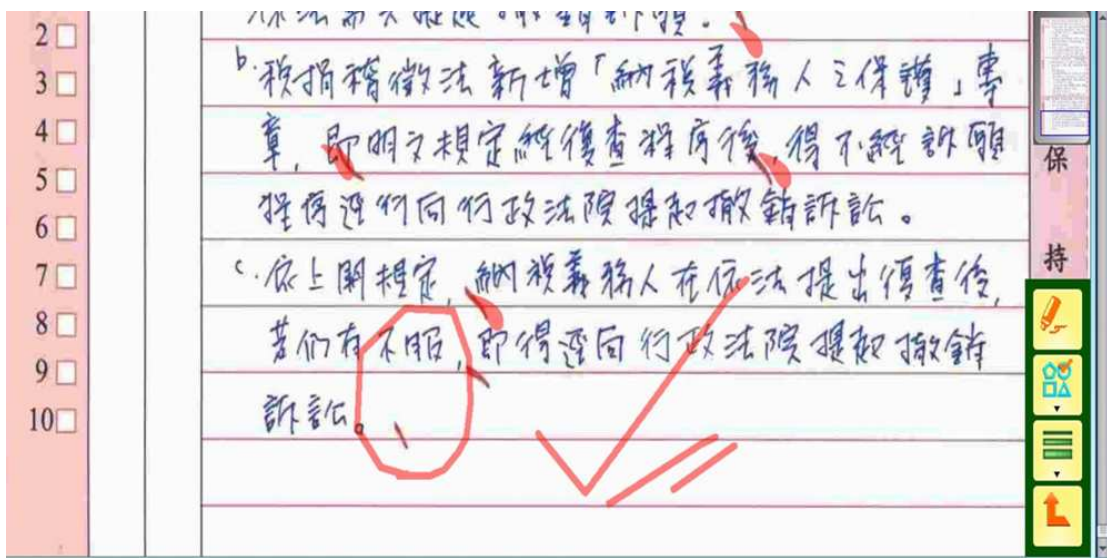 2
3
4
5
6
7
8
9
10
b. 稅捐稽徵法新增「納稅義務人之保護」專
章,即明文規定經復查程序後,得不經訴願
程序逕行向行政法院提起撤銷訴訟。
c. 依上開規定,納稅義務人在依法提出復查後,
若仍有不服,即得逕向行政法院提起撤銷
訴訟。
保
持